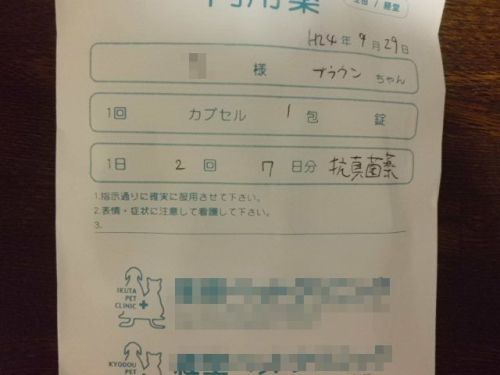 内用薬
H24年9月29日
様 ブラウン ちゃん
1回 カプセル 1 包 錠
1日 2 回 7 日分 抗真菌薬
1.指示通りに確実に服用させて下さい。
2.表情・症状に注意して看護して下さい。
3.
IKUTA
PET
CLINIC
KYODOU
PET